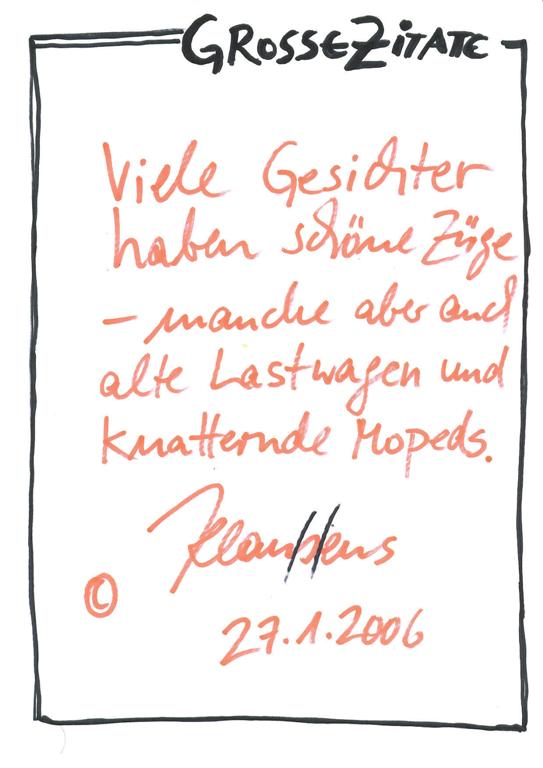 GROSSE ZITATE
Viele Gesichter
haben schöne Züge
– manche aber auch
alte Lastwagen und
knatternde Mopeds.
Klau//ens
©
27.1.2006